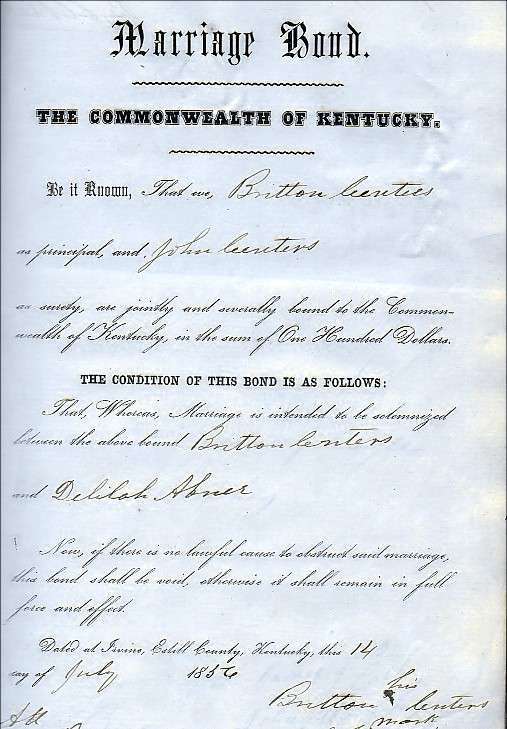 Marriage Bond.
THE COMMONWEALTH OF KENTUCKY.
Be it Known, That we, Britton Centers
as principal, and John Centers
as surety, are jointly and severally bound to the Common-
wealth of Kentucky, in the sum of One Hundred Dollars.
THE CONDITION OF THIS BOND IS AS FOLLOWS:
That, Whereas, Marriage is intended to be solemnized
between the above bound Britton Centers
and Delilah Abner
Now, if there is no lawful cause to obstruct said marriage,
this bond shall be void, otherwise it shall remain in full
force and effect.
Dated at Irvine, Estill County, Kentucky, this 14
day of July 1856
his
Britton Centers
mark
Att